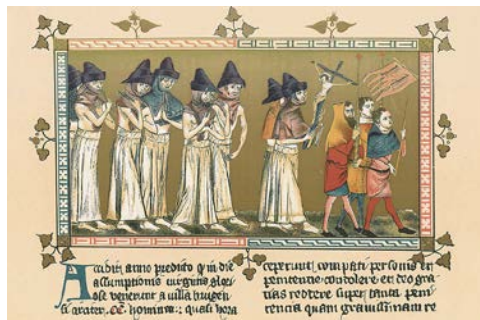 Accidit anno predicto q in die
assumptionis virginis glori
ose venerunt a villa brugen
si .CC. homines: quasi hora
ceperunt compati personis et
penitencie condolere et deo gra
tias reddere super tanta peni
tencia quam gravissimam re